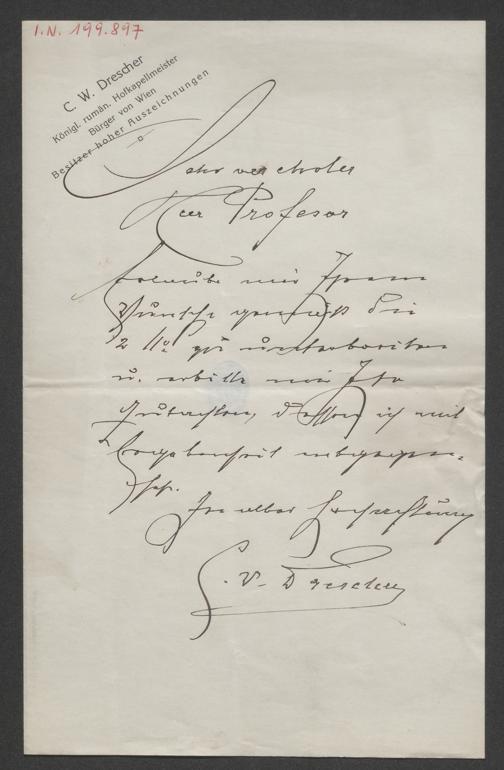 I.N. 199.897
C. W. Drescher
Königl. rumän. Hofkapellmeister
Bürger von Wien
Besitzer hoher Auszeichnungen
Sehr verehrter
Herr Profesor
Erlaube mir Ihrem
Wunsche gemäß die
2 zu unterbreiten
u. erbitte mir Ihr
Gutachten, dessen ich mit
Ergebenheit entgegen-
seh.
In aller Hochachtung
C. W. Drescher